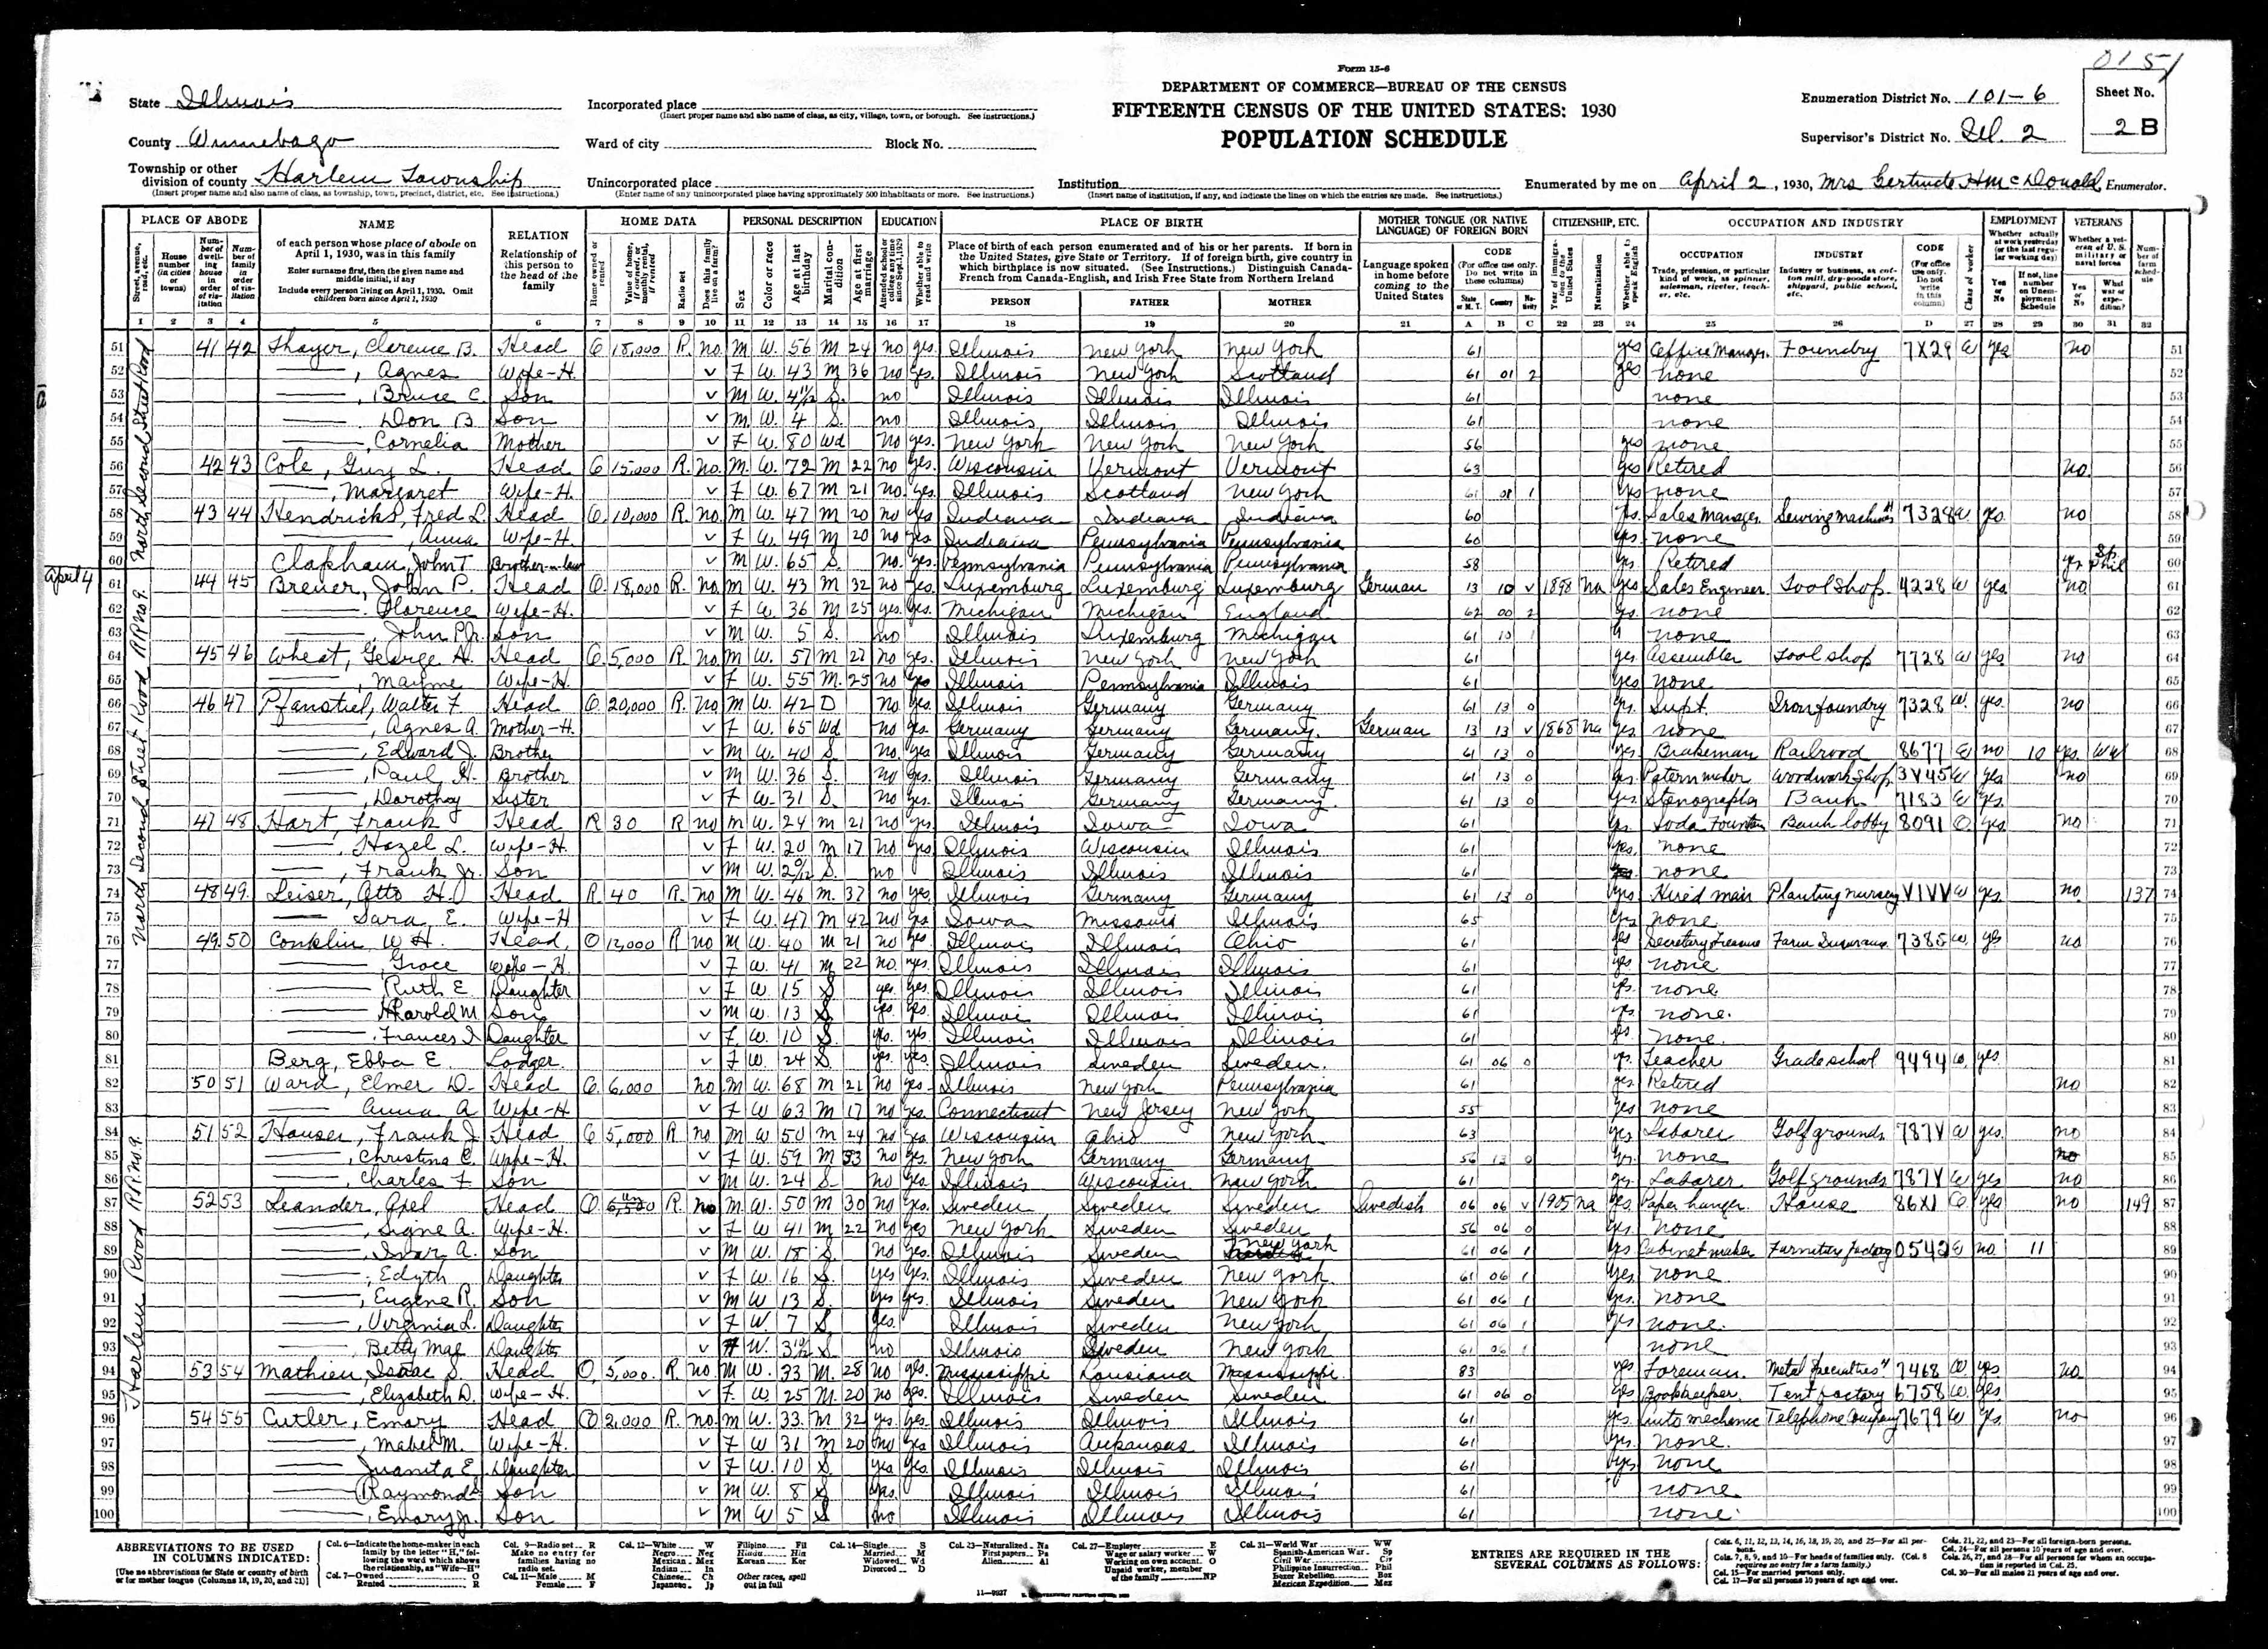 0151
Form 15-6
DEPARTMENT OF COMMERCE—BUREAU OF THE CENSUS
FIFTEENTH CENSUS OF THE UNITED STATES: 1930
POPULATION SCHEDULE
State Illinois
County Winnebago
Township or other division of county Harlem Township
(Insert proper name and also name of class, as township, town, precinct, district, etc. See instructions.)
Incorporated place
(Insert proper name and also name of class, as city, village, town, or borough. See instructions.)
Ward of city Block No.
Unincorporated place
(Enter name of any unincorporated place having approximately 500 inhabitants or more. See instructions.)
Institution
(Insert name of institution, if any, and indicate the lines on which the entries are made. See instructions.)
Enumeration District No. 101-6
Supervisor's District No. Ill. 2
Sheet No.
2 B
Enumerated by me on April 2, 1930, Mrs Gertrude H McDonald, Enumerator.
PLACE OF ABODE NAME RELATION HOME DATA PERSONAL DESCRIPTION EDUCATION PLACE OF BIRTH MOTHER TONGUE (OR NATIVE LANGUAGE) OF FOREIGN BORN CITIZENSHIP, ETC. OCCUPATION AND INDUSTRY EMPLOYMENT VETERANS
PERSON FATHER MOTHER
1 2 3 4 5 6 7 8 9 10 11 12 13 14 15 16 17 18 19 20 21 A B C 22 23 24 25 26 D 27 28 29 30 31 32
North Second Street Road
51 41 42 Thayer, Clarence B. Head O 18,000 R. no M W. 56 M 24 no yes Illinois New York New York 61 yes Office Manager Foundry 7X29 W yes no 51
52 —, Agnes Wife-H. v F W. 43 M 36 no yes. Illinois New York Scotland 61 01 2 yes none 52
53 —, Bruce C. Son v M W. S. no Illinois Illinois Illinois 61 none 53
54 — Don B Son v M W. 4 S. no Illinois Illinois Illinois 61 none 54
55 —, Cornelia Mother v F W. 80 Wd no yes. New York New York New York 56 yes none 55
56 42 43 Cole, Guy L. Head O 15,000 R. no. M. W. 72 M 22 no yes. Wisconsin Vermont Vermont 63 yes Retired no 56
57 —, Margaret Wife-H. v F W. 67 M 21 no. yes. Illinois Scotland New York 61 01 1 yes none 57
58 43 44 Hendricks, Fred L. Head O 10,000 R. no. M W. 47 M 20 no yes Indiana Indiana Indiana 60 yes. Sales Manager Sewing machines 7328 W yes. no 58
59 —, Anna Wife-H. v F W. 49 M 20 no yes Indiana Pennsylvania Pennsylvania 60 yes. none 59
60 Clapham, John T. Brother-in-law v M W. 65 S. no. yes. Pennsylvania Pennsylvania Pennsylvania 58 yes. Retired yes Sp. Phil 60
April 4
61 44 45 Breuer, John P. Head O 18,000 R. no M W. 43 M 32 no yes Luxemburg Luxemburg Luxemburg German 13 10 v 1898 na yes Sales Engineer Tool Shop. 4228 W yes no 61
62 — Florence Wife-H. v F W. 36 M 25 yes. yes. Michigan Michigan England 62 00 2 yes. none 62
63 —, John P Jr. Son v M W. 5 S. no Illinois Luxemburg Michigan 61 10 1 none 63
64 45 46 Wheat, George A. Head O 5,000 R. no M W. 57 M 27 no yes. Illinois New York New York 61 yes. Assembler Tool shop 7728 W yes no 64
65 —, Mayme Wife-H. v F W. 55 M. 25 no yes Illinois Pennsylvania Illinois 61 yes none 65
66 46 47 Pfanstiel, Walter F. Head O 20,000 R. no M W. 42 D no yes. Illinois Germany Germany 61 13 0 yes. Supt. Iron foundry 7328 W. yes. no 66
67 —, Agnes A. Mother-H. v F W. 65 Wd no yes Germany Germany Germany. German 13 13 v 1868 na yes none 67
68 —, Edward J. Brother v M W. 40 S. no. yes Illinois Germany Germany 61 13 0 yes. Brakeman Railroad 8677 W no 10 yes. WW 68
69 —, Paul H. Brother v M W. 36 S. no yes. Illinois Germany Germany 61 13 0 yes. Patern maker Woodwork shop 3V45 W yes no 69
70 —, Dorothy Sister v F W. 31 S. no yes. Illinois Germany Germany. 61 13 0 yes. Stenographer Bank 7183 W yes. 70
71 47 48 Hart, Frank Head R 30 R no M W. 24 M 21 no yes Illinois Iowa Iowa 61 yes. Soda Fountain Bank lobby 8091 O. yes. no 71
72 —, Hazel L. Wife-H. v F W. 20 M 17 no yes Illinois Wisconsin Illinois 61 yes. none 72
73 —, Frank Jr. Son v M W. S. no Illinois Illinois Illinois 61 none 73
74 48 49 Leiser, Otto H. Head R. 40 R. no M W. 46 M. 37 no yes. Illinois Germany Germany 61 13 0 yes Hired man Planting nursery VIVV W yes. no 137 74
75 — Sara E. Wife-H v F W. 47 M 42 no yes Iowa Missouri Illinois 65 yes none 75
76 49 50 Conklin W H. Head O 12,000 R no M W. 40 M 21 no yes. Illinois Illinois Ohio 61 yes Secretary Treasure Farm Insurance 7385 W. yes no 76
77 —, Grace Wife-H. v F W. 41 M 22 no. yes. Illinois Illinois Illinois 61 yes. none 77
78 — Ruth E. Daughter v F W 15 S yes. yes. Illinois Illinois Illinois 61 yes. none 78
79 — Harold M. Son v M W. 13 S. yes. yes. Illinois Illinois Illinois 61 yes. none. 79
80 — Frances I. Daughter v F W. 10 S. yes. yes Illinois Illinois Illinois 61 yes. none. 80
81 Berg, Ebba E Lodger. v F W. 24 S. yes. yes. Illinois Sweden Sweden. 61 06 0 yes. Teacher Grade school 9494 W. yes. 81
82 50 51 Ward, Elmer D. Head O 6,000 no M W. 68 M 21 no yes. Illinois New York Pennsylvania 61 yes. Retired no 82
83 — Anna A. Wife-H v F W 63 M 17 no yes. Connecticut New Jersey New York 55 yes none 83
Harlem Road RR no 9.
84 51 52 Hauser, Frank J. Head O 5,000 R no M W 50 M 24 no yes Wisconsin Ohio New York 63 yes. Laborer Golf grounds. 787V W yes. no 84
85 —, Christina C. Wife-H. v F W. 59 M 33 no yes. New York Germany Germany 56 13 0 yes. none no 85
86 —, Charles F. Son v M W. 24 S. no yes Illinois Wisconsin New York 61 yes. Laborer Golf grounds 787V W yes no 86
87 52 53 Leander, Axel Head O R. no M W. 50 M 30 no yes. Sweden Sweden Sweden Swedish 06 06 v 1905 na yes Paper hanger. House 86X1 O yes no 149 87
88 —, Signe A. Wife-H. v F W 41 M 22 no yes New York Sweden Sweden 56 06 0 yes. none 88
89 —, Ivar A. Son v M W. 18 S. no yes. Illinois Sweden New York 61 06 1 yes Cabinet maker Furniture factory 0542 W no. 11 89
90 —, Edyth Daughter v F W. 16 S. yes yes. Illinois Sweden New York. 61 06 1 yes. none 90
91 —, Eugene R. Son v M W 13 S yes yes. Illinois Sweden New York 61 06 1 yes. none 91
92 —, Virginia L. Daughter v F W 7 S yes. Illinois Sweden New York 61 06 1 yes none. 92
93 —, Betty Mae Daughter v F W. S no Illinois Sweden New York 61 06 1 none 93
94 53 54 Mathieu Isaac S. Head O 5,000. R. no. M W. 33 M. 28 no yes. Mississippi Louisiana Mississippi. 83 yes Foreman. Metal Specialties 7468 W. yes. no. 94
95 —, Elizabeth D. Wife-H. v F. W. 25 M. 20 no yes. Illinois Sweden Sweden 61 06 0 yes Bookkeeper. Tent factory 6758 W. yes 95
96 54 55 Cutler, Emary Head O 2,000 R. no. M W. 33. M 32 yes. yes. Illinois Illinois Illinois 61 yes. Auto mechanic Telephone Company 7679 W yes. no 96
97 —, Mabel M. Wife-H. v F W 31 M 20 no yes Illinois Arkansas Illinois 61 yes. none. 97
98 — Juanita E. Daughter v F W. 10 S. yes yes. Illinois Illinois Illinois 61 yes none 98
99 — Raymond Son v M W. 8 S yes. Illinois Illinois Illinois 61 none 99
100 —, Emary Jr. Son v M W 5 S no Illinois Illinois Illinois 61 none. 100
ABBREVIATIONS TO BE USED IN COLUMNS INDICATED:
[Use no abbreviations for State or country of birth or for mother tongue (Columns 18, 19, 20, and 21)]
ENTRIES ARE REQUIRED IN THE SEVERAL COLUMNS AS FOLLOWS:
11—9927